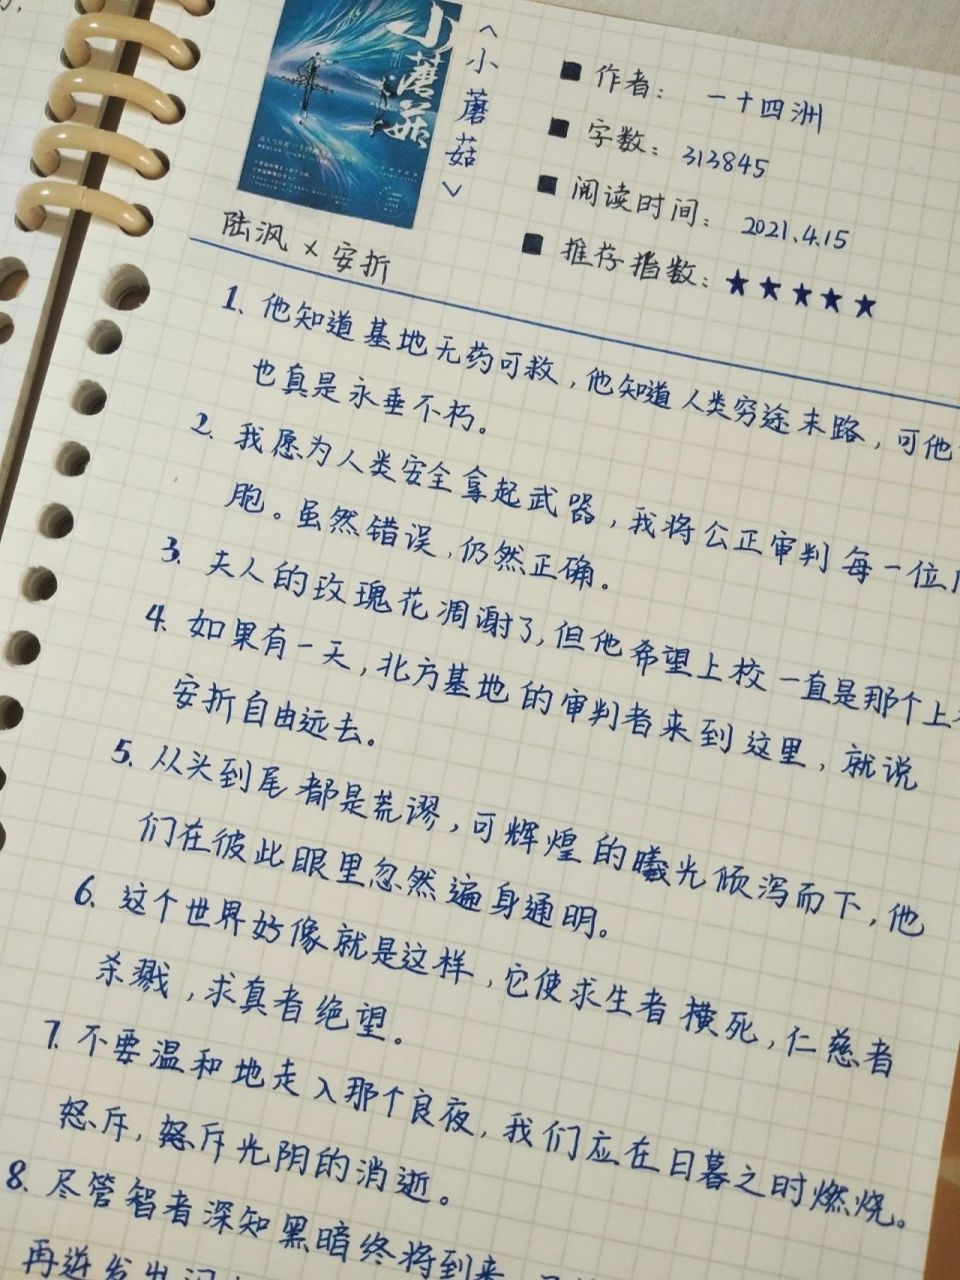 小蘑菇
《小蘑菇》
■ 作者： 一十四洲
■ 字数： 313845
■ 阅读时间： 2021.4.15
■ 推荐指数：★★★★★
陆沨 × 安折
1. 他知道基地无药可救，他知道人类穷途末路，可他
也真是永垂不朽。
2. 我愿为人类安全拿起武器，我将公正审判每一位
胞。虽然错误，仍然正确。
3. 夫人的玫瑰花凋谢了，但他希望上校一直是那个上
4. 如果有一天，北方基地的审判者来到这里，就说
安折自由远去。
5. 从头到尾都是荒谬，可辉煌的曦光倾泻而下，他
们在彼此眼里忽然遍身通明。
6. 这个世界好像就是这样，它使求生者横死，仁慈者
杀戮，求真者绝望。
7. 不要温和地走入那个良夜，我们应在日暮之时燃烧。
怒斥，怒斥光阴的消逝。
8. 尽管智者深知黑暗终将到来
再迸发出